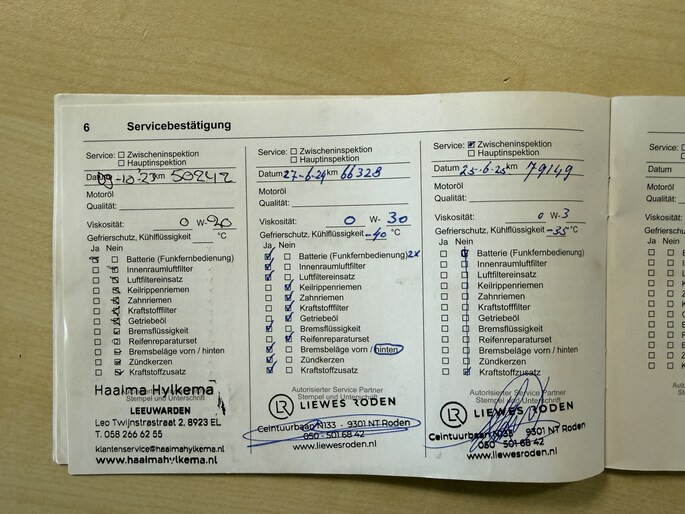 6 Servicebestätigung
Service: Zwischeninspektion
Hauptinspektion
Datum 09-10-23 km 50242
Motoröl
Qualität:
Viskosität: 0 W-20
Gefrierschutz, Kühlflüssigkeit °C
Ja Nein
Batterie (Funkfernbedienung)
Innenraumluftfilter
Luftfiltereinsatz
Keilrippenriemen
Zahnriemen
Kraftstofffilter
Getriebeöl
Bremsflüssigkeit
Reifenreparaturset
Bremsbeläge vorn / hinten
Zündkerzen
Kraftstoffzusatz
Autorisierter Service Partner
Stempel und Unterschrift
Haaima Hylkema
LEEUWARDEN
Leo Twijnstrastraat 2, 8923 EL
T. 058 266 62 55
klantenservice@haaimahylkema.nl
www.haaimahylkema.nl
Service: Zwischeninspektion
Hauptinspektion
Datum 27-6-24 km 66328
Motoröl
Qualität:
Viskosität: 0 W-30
Gefrierschutz, Kühlflüssigkeit -40 °C
Ja Nein
Batterie (Funkfernbedienung) 2x
Innenraumluftfilter
Luftfiltereinsatz
Keilrippenriemen
Zahnriemen
Kraftstofffilter
Getriebeöl
Bremsflüssigkeit
Reifenreparaturset
Bremsbeläge vorn / hinten
Zündkerzen
Kraftstoffzusatz
Autorisierter Service Partner
Stempel und Unterschrift
LR LIEWES RODEN
Ceintuurbaan N133 - 9301 NT Roden
050 - 501 68 42
www.liewesroden.nl
Service: Zwischeninspektion
Hauptinspektion
Datum 25-6-25 km 79149
Motoröl
Qualität:
Viskosität: 0 W-3
Gefrierschutz, Kühlflüssigkeit -35 °C
Ja Nein
Batterie (Funkfernbedienung)
Innenraumluftfilter
Luftfiltereinsatz
Keilrippenriemen
Zahnriemen
Kraftstofffilter
Getriebeöl
Bremsflüssigkeit
Reifenreparaturset
Bremsbeläge vorn / hinten
Zündkerzen
Kraftstoffzusatz
Autorisierter Service Partner
Stempel und Unterschrift
LR LIEWES RODEN
Ceintuurbaan N133 9301 NT Roden
050 - 501 68 42
www.liewesroden.nl
Service:
Datum
Motoröl
Qualität:
Viskosität:
Gefrierschutz
Ja Nein